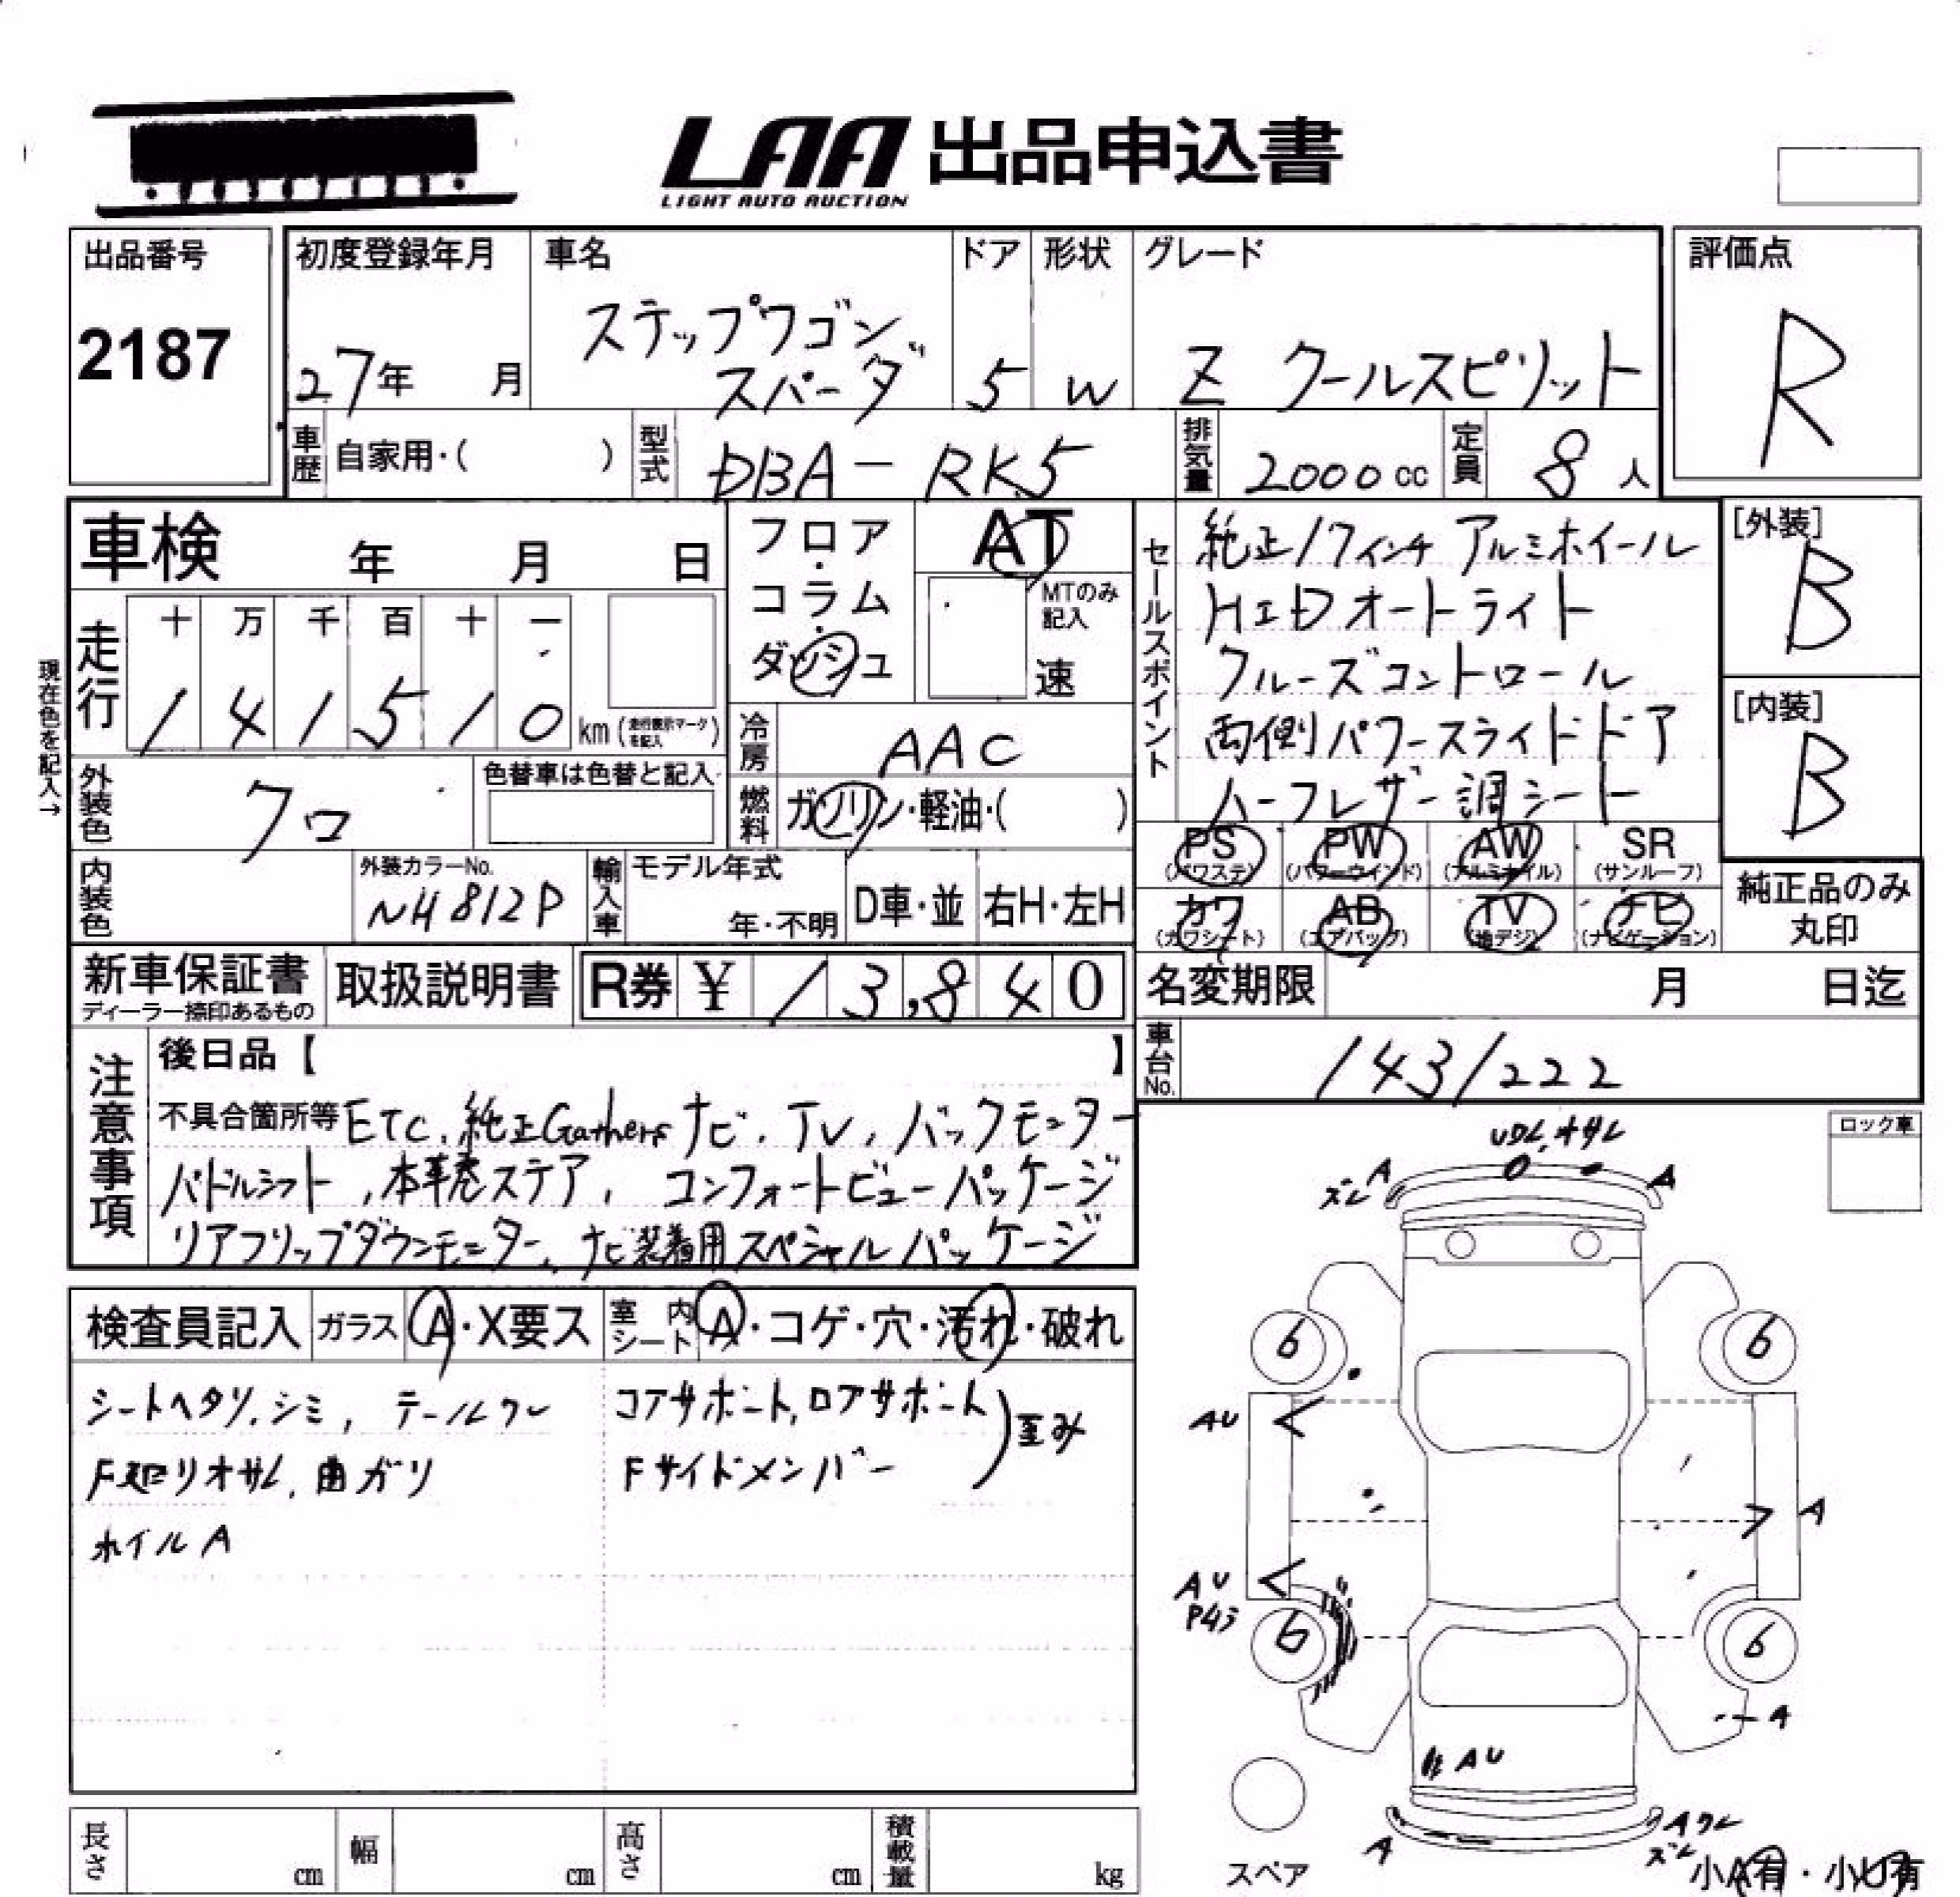 LAA 出品申込書
LIGHT AUTO AUCTION
出品番号
2187
初度登録年月
27年 月
車名
ステップワゴン
スパーダ
ドア
5
形状
W
グレード
Z クールスピリット
評価点
R
車歴
自家用・( )
型式
DBA-RK5
排気量
2000 cc
定員
8 人
車検 年 月 日
フロア・
コラム・
ダッシュ
AT
MTのみ
記入
速
セールスポイント
純正17インチ アルミホイール
HIDオートライト
クルーズコントロール
両側パワースライドドア
ハーフレザー調シート
[外装]
B
[内装]
B
現在色を記入→
走行
十 万 千 百 十 一
1 4 1 5 1 0 km (走行表示マークを記入)
冷房
AAC
外装色
クロ
色替車は色替と記入
燃料
ガソリン・軽油・( )
PS (パワステ)
PW (パワーウインド)
AW (アルミホイル)
SR (サンルーフ)
カワ (カワシート)
AB (エアバッグ)
TV (地デジ)
ナビ (ナビゲーション)
純正品のみ
丸印
内装色
外装カラーNo.
NH812P
輸入車
モデル年式
年・不明
D車・並
右H・左H
新車保証書
ディーラー捺印あるもの
取扱説明書
R券 ¥ 13,840
名変期限 月 日迄
車台No.
1431222
注意事項
後日品【 】
不具合箇所等 ETC、純正Gathersナビ、TV、バックモニター
パドルシフト、本革巻ステア、コンフォートビューパッケージ
リアフリップダウンモニター、ナビ装着用スペシャルパッケージ
ロック車
検査員記入
ガラス
A・X要ス
室内シート
A・コゲ・穴・汚れ・破れ
シートヘタリ、シミ、テールワレ
コアサポート、ロアサポート
Fサイドメンバー
歪み
F廻りオサレ、曲ガリ
ホイルA
オサレ
ズレ A
A
6
6
AU
A
AU
6
6
A
AU
A
Aワレ
ズレ
スペア
小A有・小U有
長さ cm
幅 cm
高さ cm
積載量 kg